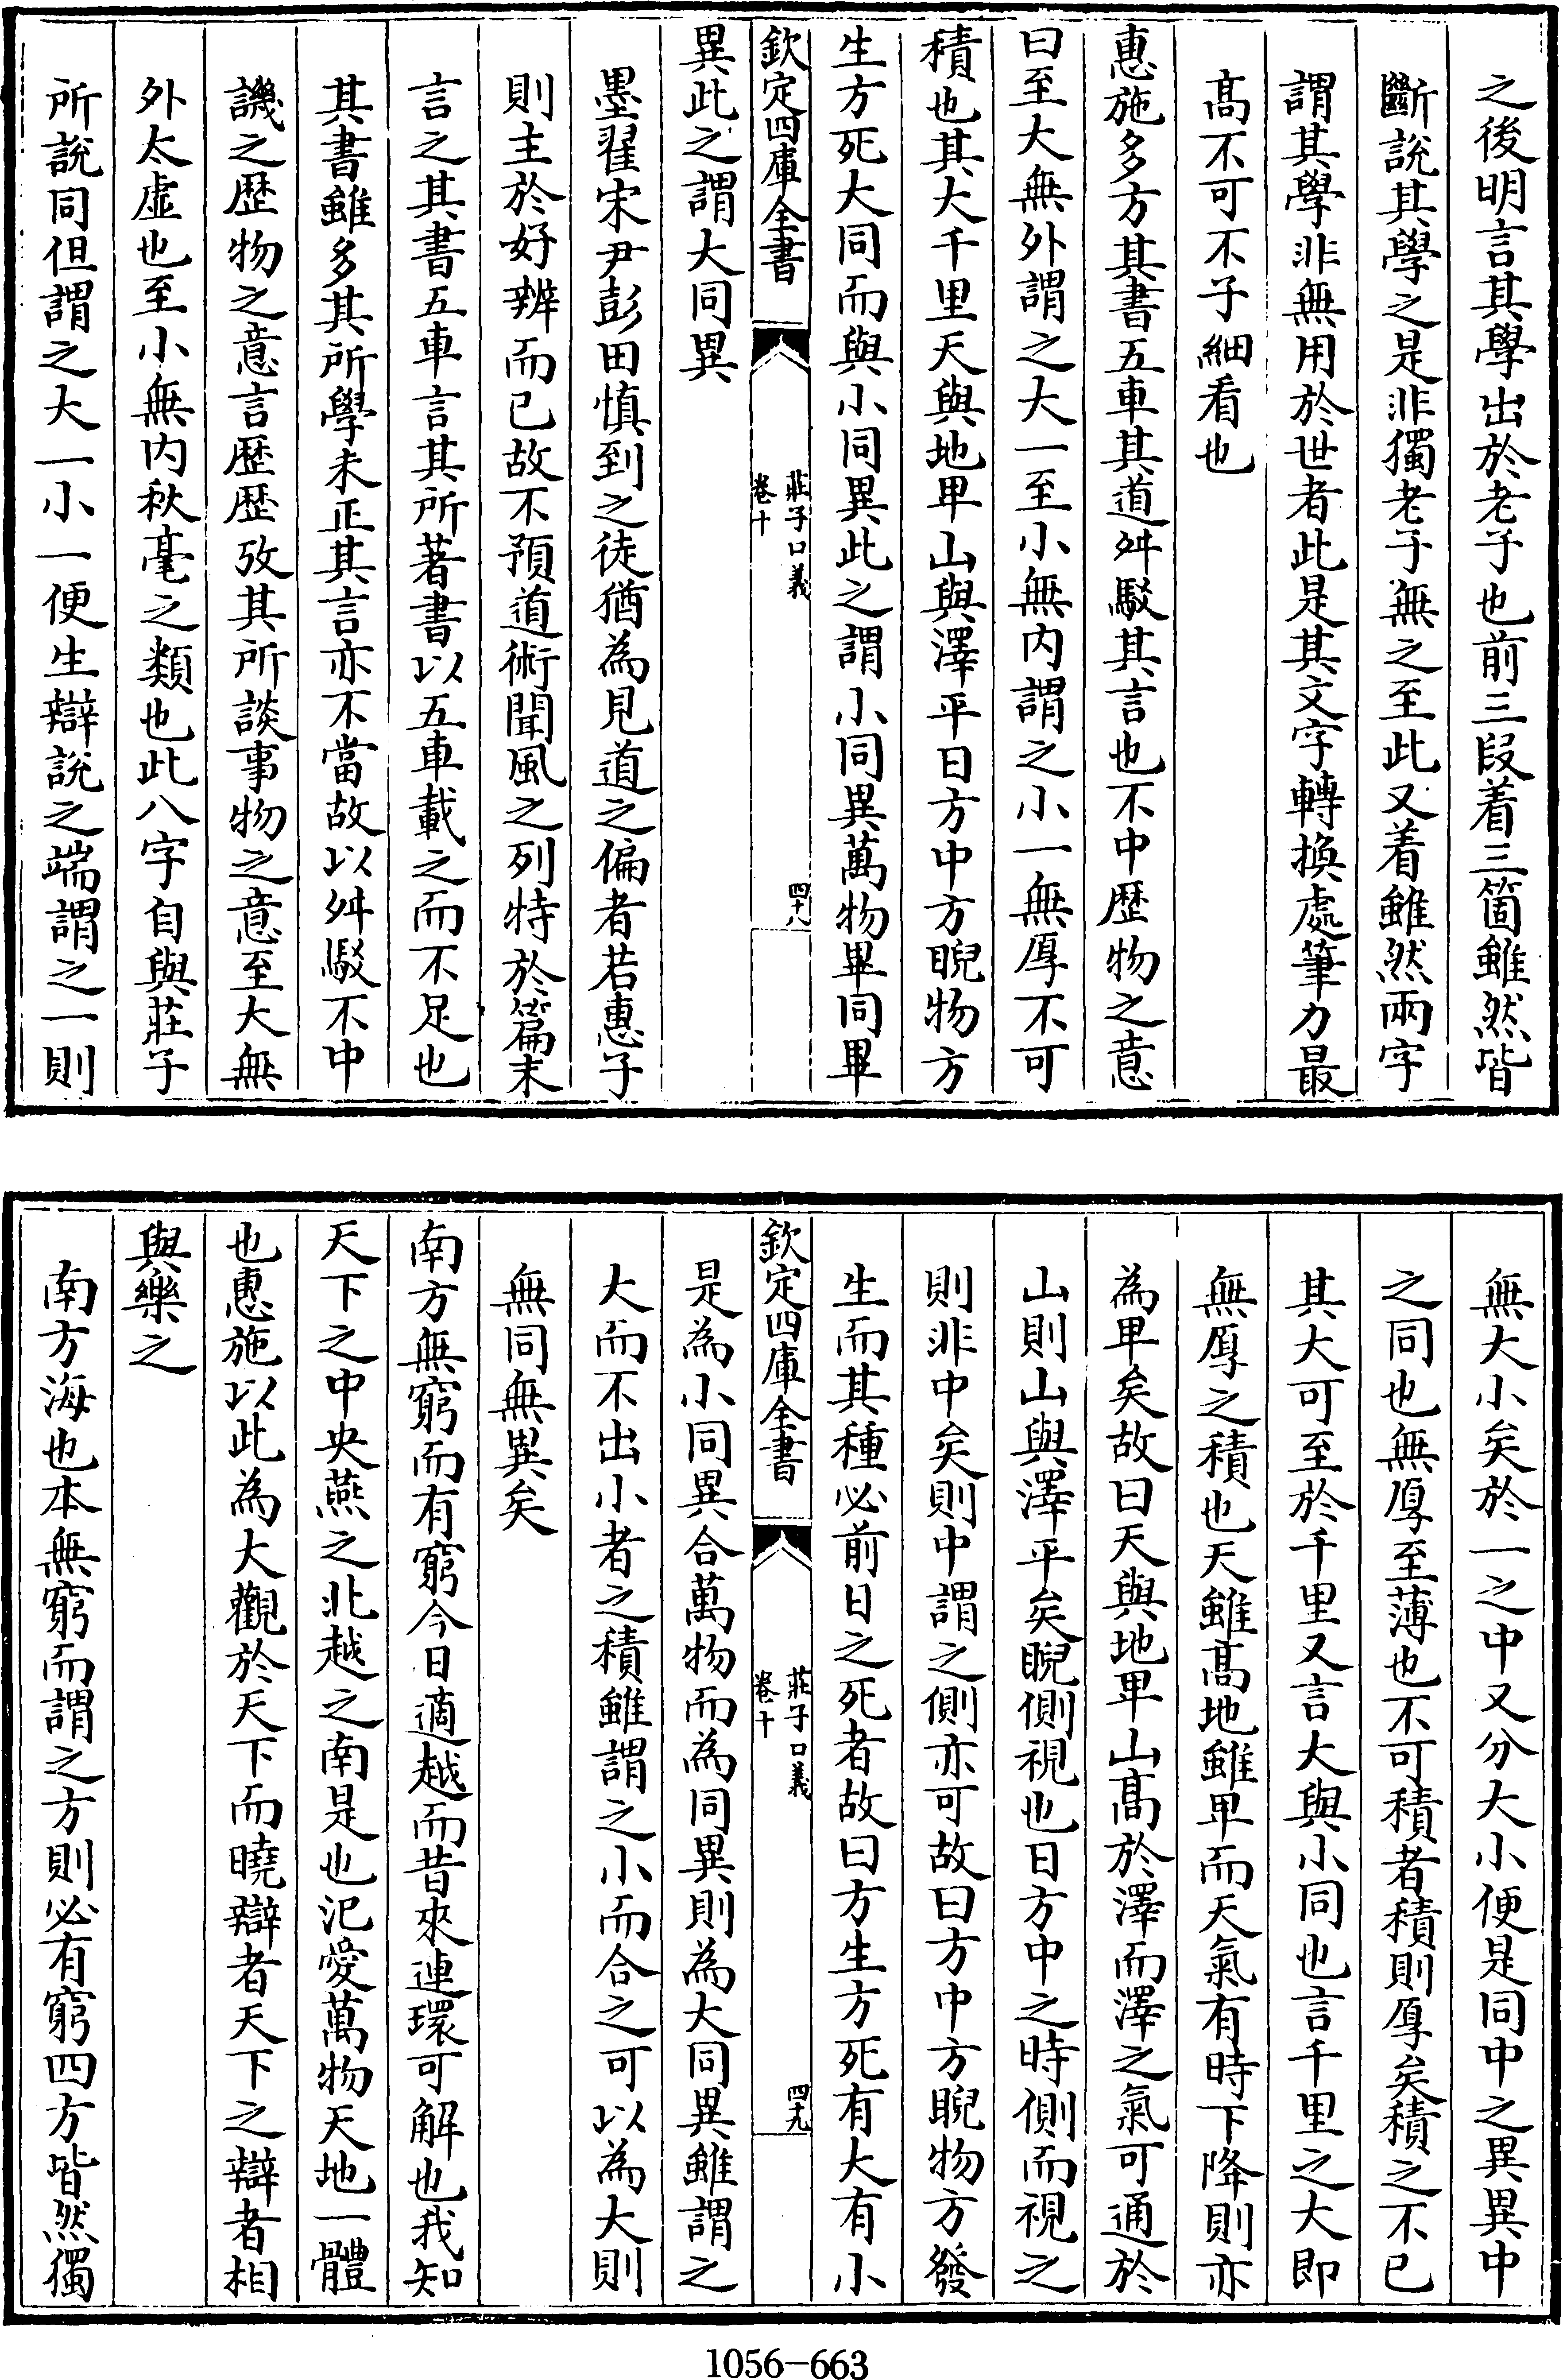 之後明言其學出於老子也前三段着三箇雖然皆
斷說其學之是非獨老子無之至此又着雖然兩字
謂其學非無用於世者此是其文字轉換處筆力最
髙不可不子細看也
惠施多方其書五車其道舛駁其言也不中歴物之意
曰至大無外謂之大一至小無内謂之小一無厚不可
積也其大千里天與地卑山與澤平日方中方睨物方
生方死大同而與小同異此之謂小同異萬物畢同畢
欽定四庫全書
莊子口義
卷十
四十八
異此之謂大同異
墨翟宋尹彭田慎到之徒猶為見道之偏者若惠子
則主於好辨而已故不預道術聞風之列特於篇末
言之其書五車言其所著書以五車載之而不足也
其書雖多其所學未正其言亦不當故以舛駁不中
譏之歴物之意言歴歴攷其所談事物之意至大無
外太虚也至小無内秋毫之類也此八字自與莊子
所說同但謂之大一小一便生辯說之端謂之一則
無大小矣於一之中又分大小便是同中之異異中
之同也無厚至薄也不可積者積則厚矣積之不已
其大可至於千里又言大與小同也言千里之大即
無厚之積也天雖髙地雖卑而天氣有時下降則亦
為卑矣故曰天與地卑山髙於澤而澤之氣可通於
山則山與澤平矣睨側視也日方中之時側而視之
則非中矣則中謂之側亦可故曰方中方睨物方發
生而其種必前日之死者故曰方生方死有大有小
欽定四庫全書
莊子口義
卷十
四十九
是為小同異合萬物而為同異則為大同異雖謂之
大而不出小者之積雖謂之小而合之可以為大則
無同無異矣
南方無窮而有窮今日適越而昔來連環可解也我知
天下之中央燕之北越之南是也氾愛萬物天地一體
也惠施以此為大觀於天下而曉辯者天下之辯者相
與樂之
南方海也本無窮而謂之方則必有窮四方皆然獨
1056-663